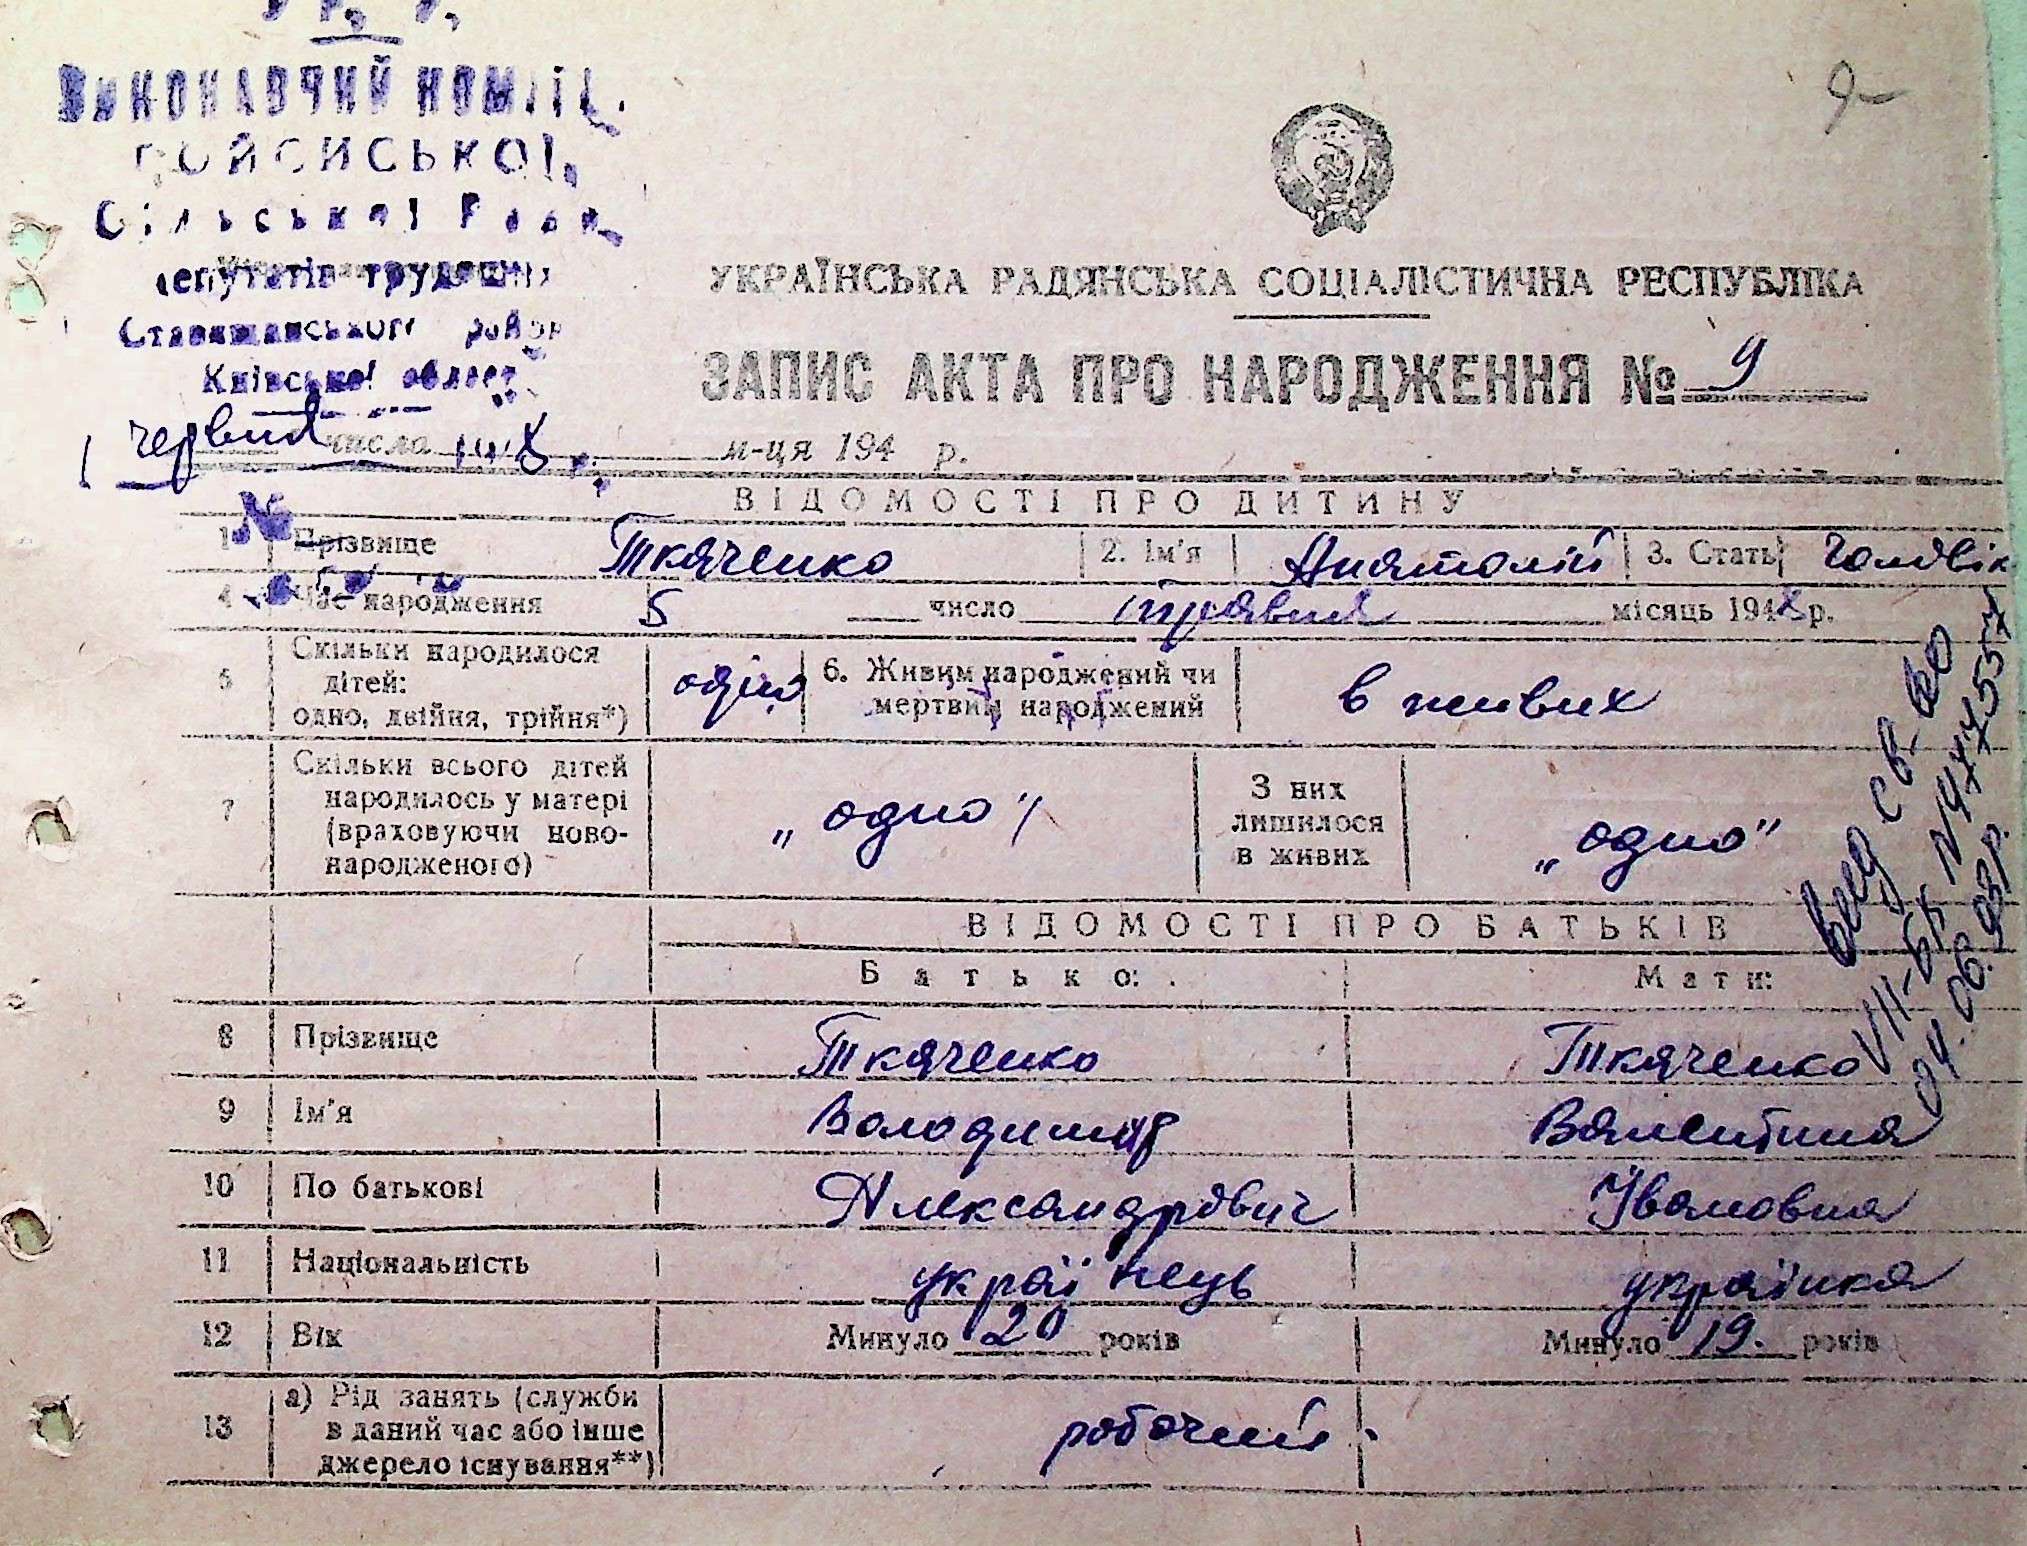 Виконавчий коміт
Розкішської
Сільської Ради
депутатів трудящих
Ставищанського район
Київської област
9
УКРАЇНСЬКА РАДЯНСЬКА СОЦІАЛІСТИЧНА РЕСПУБЛІКА
ЗАПИС АКТА ПРО НАРОДЖЕННЯ № 9
1 червня числа 1948 р. м-ця 194 р.
ВІДОМОСТІ ПРО ДИТИНУ
№
1 Прізвище Ткаченко 2. Ім'я Анатолій 3. Стать Чоловік
4 Час народження 5 число травня місяць 1948 р.
5 Скільки народилося
дітей:
одно, двійня, трійня*) одно 6. Живим народжений чи
мертвим народжений в живих
7 Скільки всього дітей
народилось у матері
(враховуючи ново-
народженого) „одно" З них
лишилося
в живих „одно"
ВІДОМОСТІ ПРО БАТЬКІВ
Батько: Мати:
8 Прізвище Ткаченко Ткаченко
9 Ім'я Володимир Валентина
10 По батькові Александрович Івановна
11 Національність українець українка
12 Вік Минуло 20 років Минуло 19. років
13 а) Рід занять (служби
в даний час або інше
джерело існування**) робочий
вид св-во
VII-БК
04.06.93р.